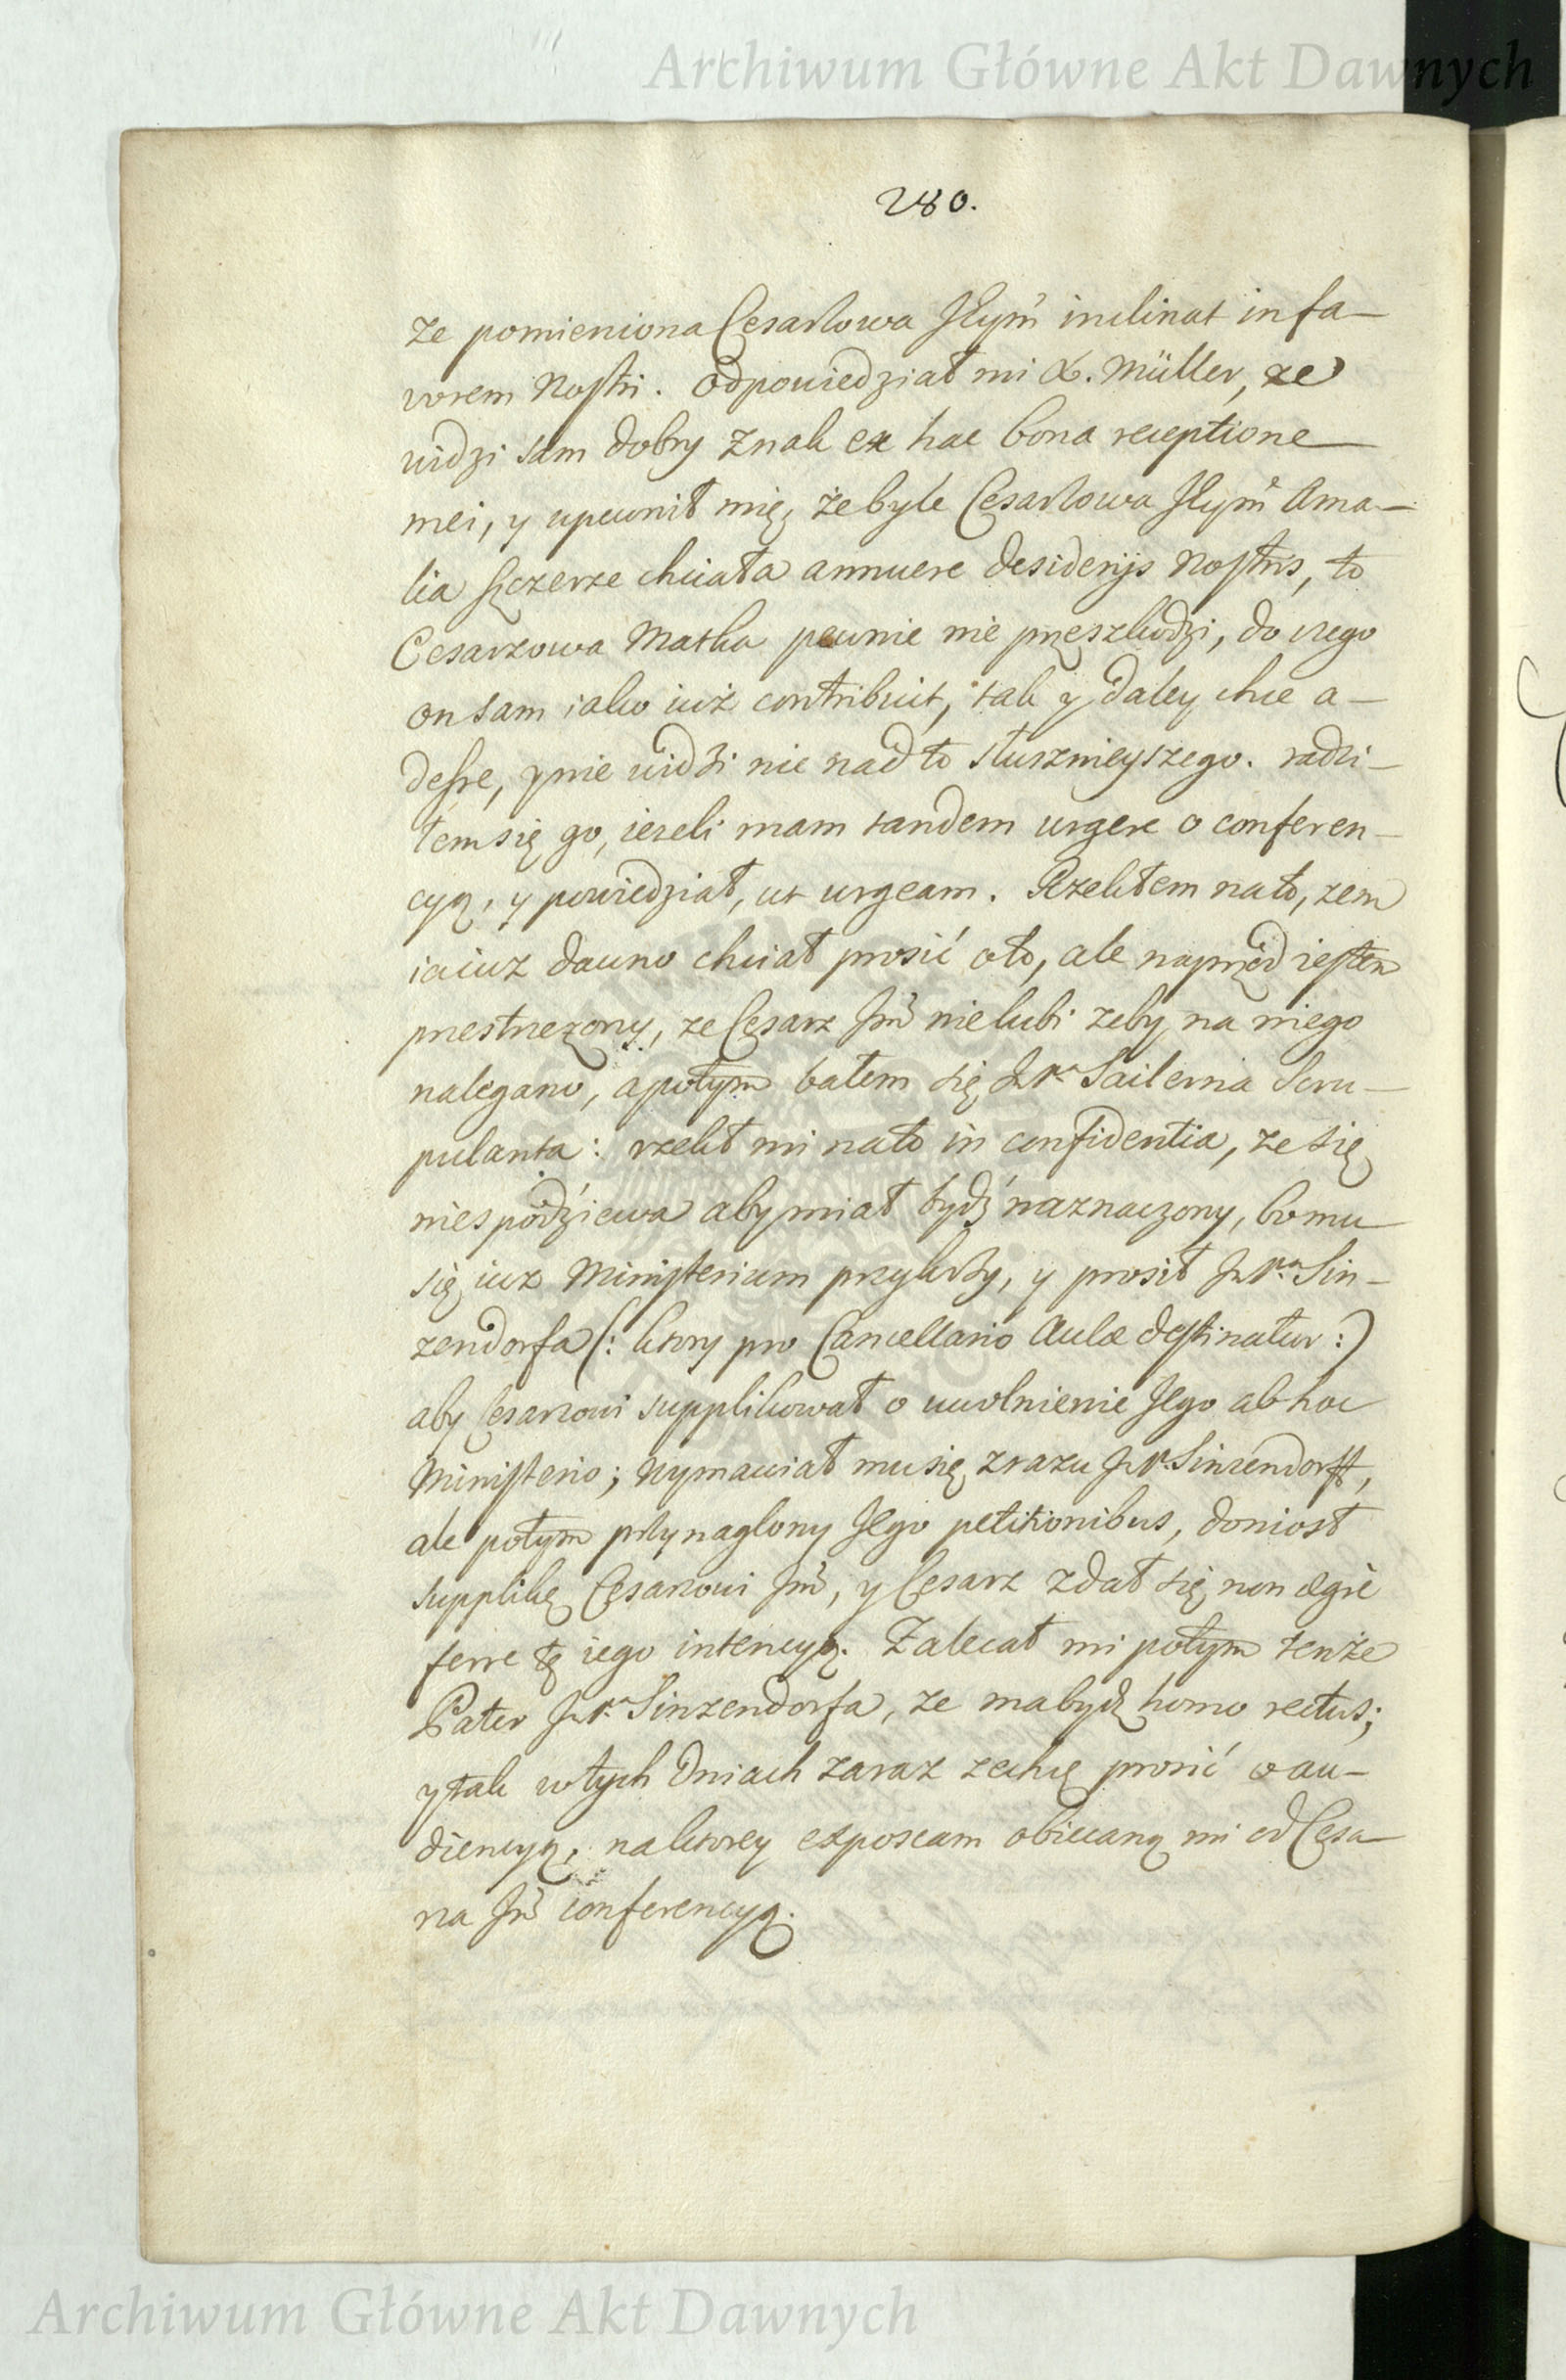 Archiwum Główne Akt Dawnych
280.
ze pomieniona Cesarzowa Jeÿm̃ inclinat in fa-
vorem Nostri. Odpowiedział mi X. Müller, ze
widzi sam dobry znak ex hac bona receptione
mei, y upewnił mię, że byle Cesarzowa Jeÿm̃ Ama-
lia szczerze chciała annuere desiderijs Nostris, to
Cesarzowa Matka pewnie nie przeszkodzi, do czego
on sam iako iuż contribuit, tak y daley chce a-
desse, y nie widzi nic nad to słusznieyszego. radzi-
łem się go, iezeli mam tandem urgere o conferen-
cyą, y powiedział, ut urgeam. Rzekłem na to, zem
ia iuz dawno chciał prosić o to, ale naprzod iestem
przestrzezony, ze Cesarz Jm̃ nie lubi zeby na niego
nalegano, a potym bałem się JP.ͣ Sailerna Scru-
pulanta: rzekł mi na to in confidentia, ze się
nie spodziewa aby miał bydź naznaczony, bo mu
się iuz Ministerium przykrzy, y prosił JP.ͣ Sin-
zendorfa (: ktory pro Cancellario Aulæ destinatur :)
aby Cesarzowi supplikował o uwolnienie Jego ab hoc
Ministerio; Wymawiał mu się zrazu JP. Sinzendorff,
ale potym przynaglony Jego petitionibus, doniosł
supplikę Cesarzowi Jm̃, y Cesarz zdał się non ægre
ferre tę iego intencyą. Zalecał mi potym tenże
Pater JP.ͣ Sinzendorfa, ze ma bydź homo rectus;
y tak w tych dniach zaraz zechcę prosić o au-
diencyą, na ktorey exposcam obiecaną mi od Cesa-
rza Jm̃ conferencyą.
Archiwum Główne Akt Dawnych